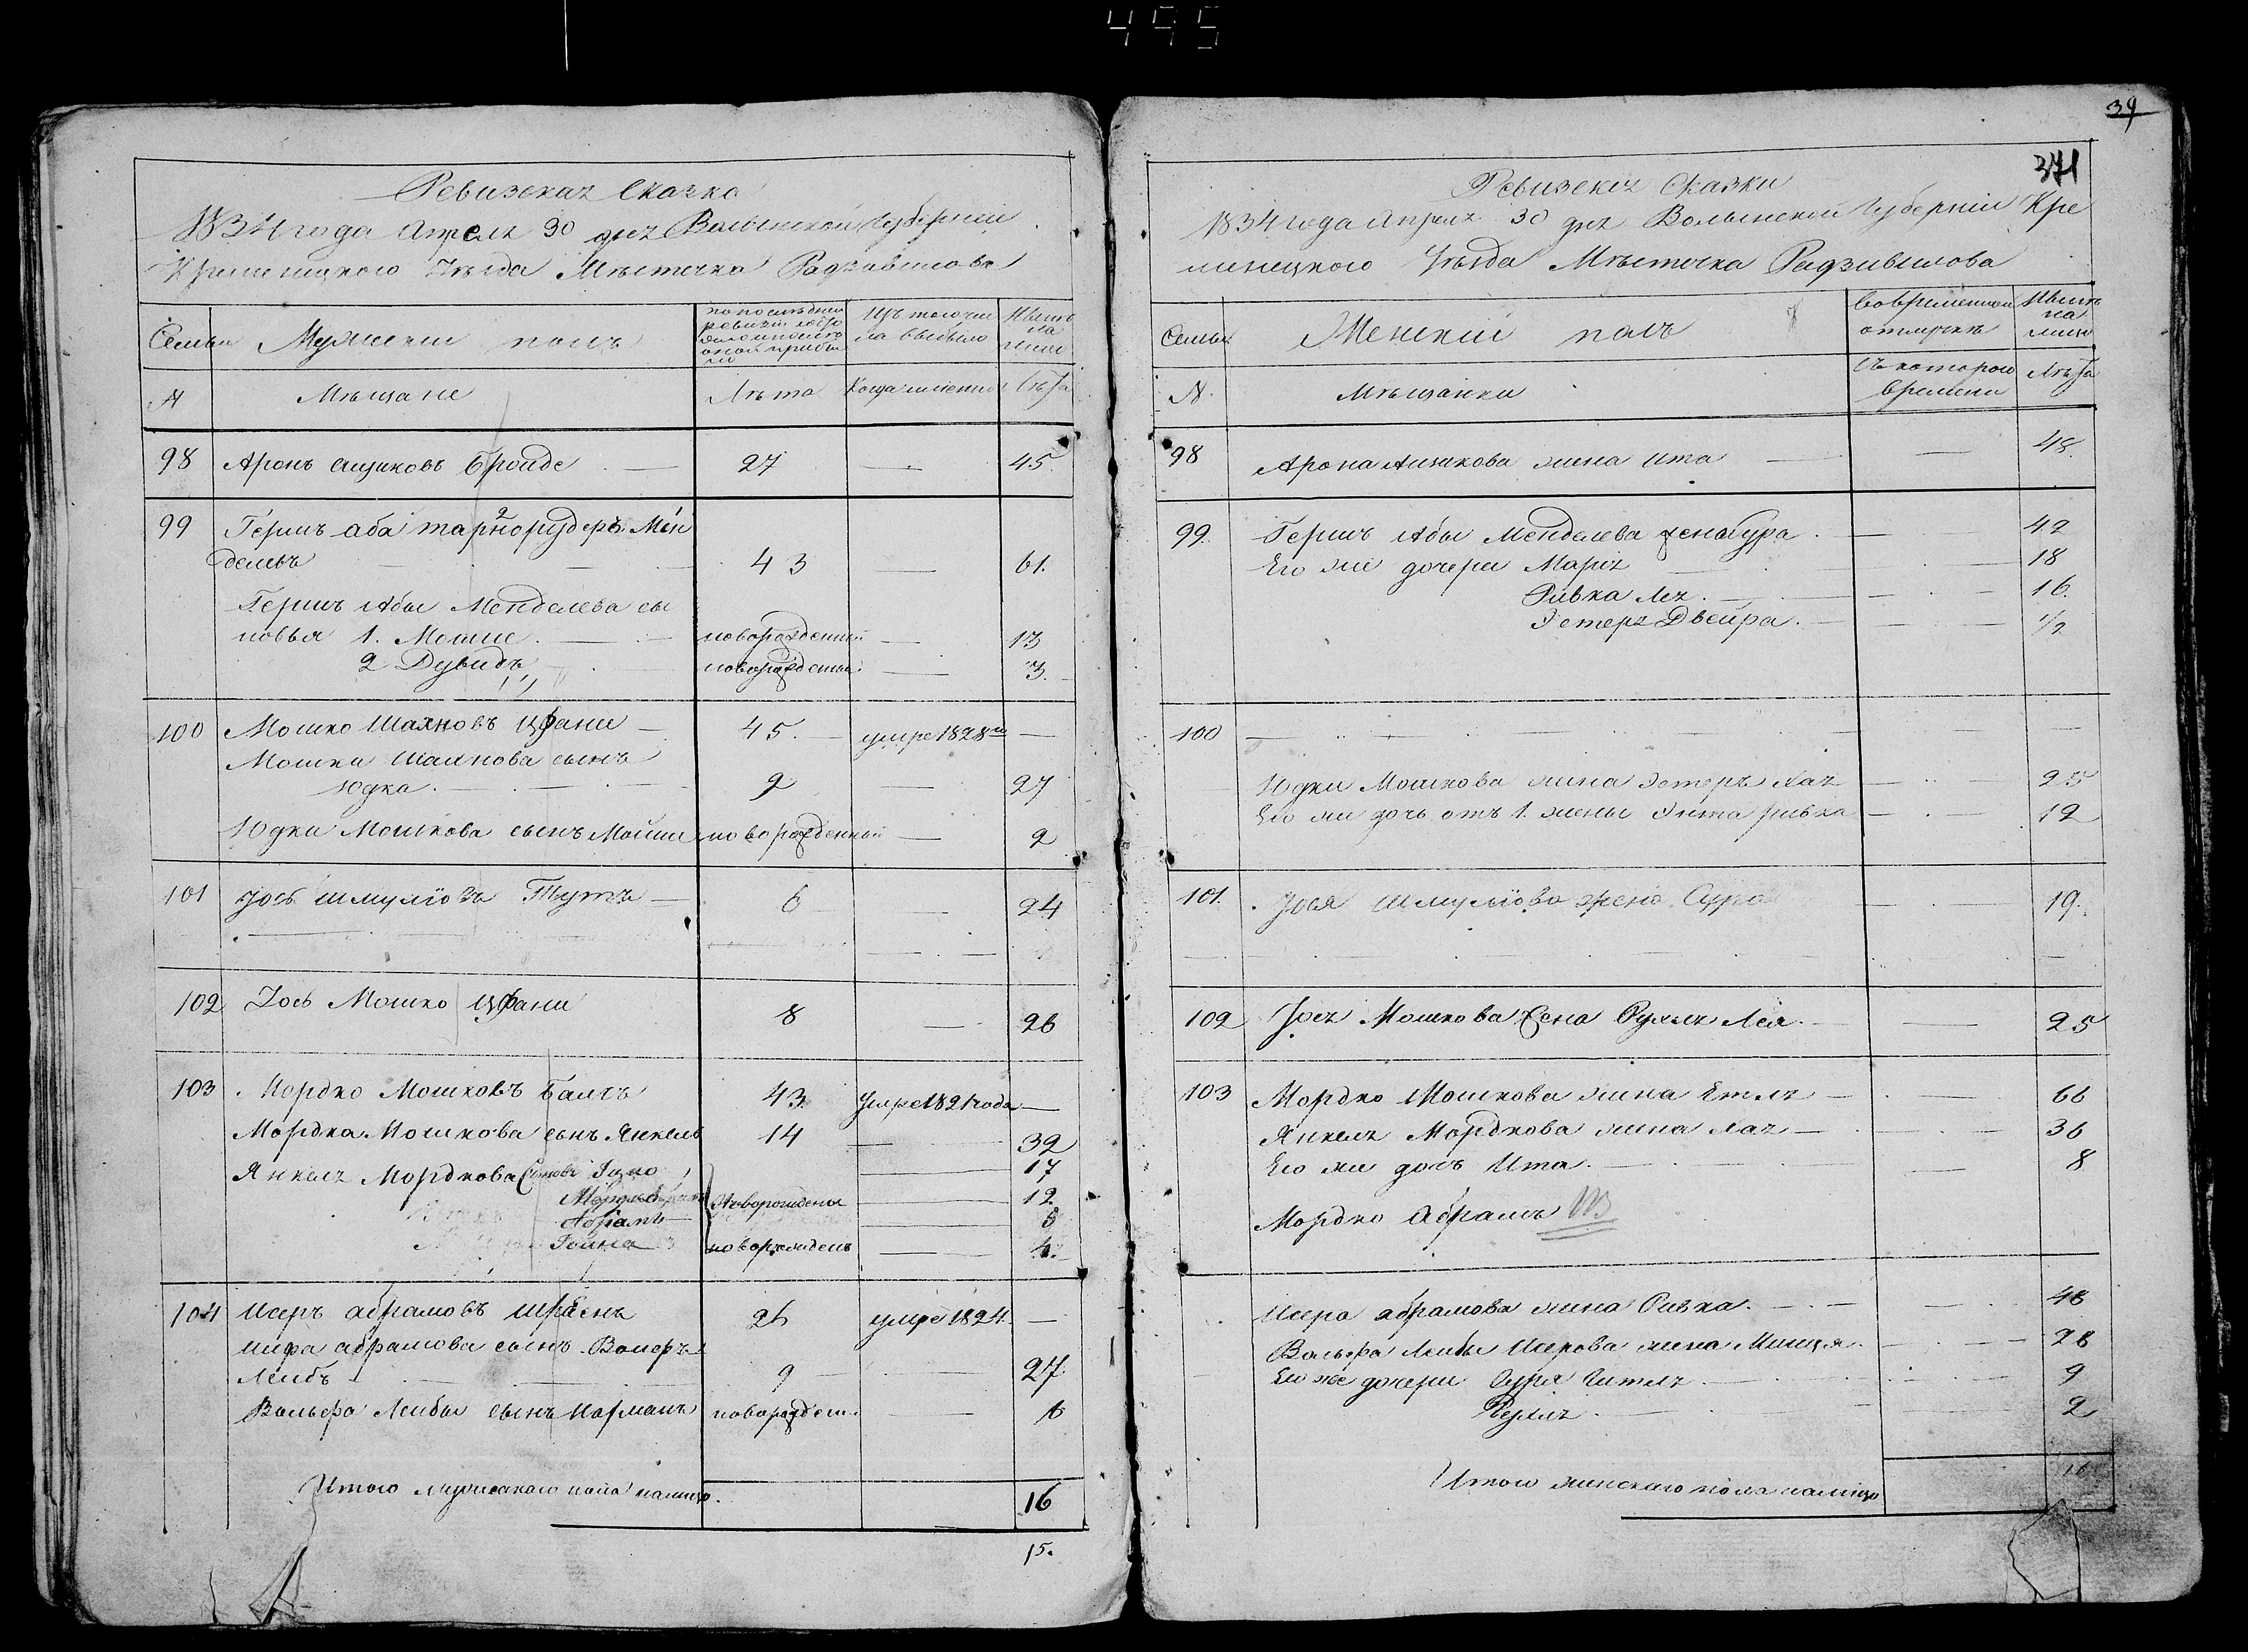 495
Ревизская Сказка
1834 года Апреля 30 дня Волынской Губернии
Кременецкого Уезда Мѣстечка Радзивилова
Семьи Мужеский полъ
Изъ того числа выбыло
№ Мѣщане Лѣта Когда именно Лѣта
98 Аронъ Ицковъ Бройде — 27 — 45.
99 Гершъ аба тарнорудеръ Мен
делевъ — 43 — 61.
Гершъ Абы Менделева сы
новья 1. Мошие. — новорожденный — 13
2 Дувидъ — новорожденный — 3.
100 Мошко Шахновъ Цфани — 45. умре 1828го —
Мошки Шахнова сынъ
Юдка. — 9 — 27
Юдки Мошкова сынъ Мойше новорожденный — 2
101 Іось Шмуліовъ — 6 — 24
102 Іось Мошко Цфани 8 — 26
103 Мордко Мошковъ 43. Умре 1821 года —
Мордка Мошкова сынъ Янкель 14 — 32
Янкеля Мордкова Сыновья Іцко — 17
Новорожденны — 12.
Абрамъ —
Гойна новорожденъ — 4.
104 Исеръ абрамовъ 26 умре 1824. —
абрамова сынъ Вольфъ
Лейбъ — 9 — 27.
Вольфа Лейбы сынъ новорожден. — 6
Итого мужескаго пола налицо. 16
15.
39
371
Ревизская Сказка
1834 года Апреля 30 дня Волынской Губерніи Кре
менецкого Уѣзда Мѣстечка Радзивилова
Семьи Женскій полъ Во временной отлучкѣ
№. Мѣщанки Съ котораго времени Лѣта
98 Арона Ицкова жена Ита — 48.
99. Гершъ Абы Менделева жена Сура. — 42
Его же дочери Марія — 18
Ривка Лея. — 16.
Эстера Двейра. — 1/2
100 —
Юдки Мошкова жена Эстеръ Хая — 25
Его же дочь отъ 1. жены Ривка — 12
101. Іося Шмуліова жена Сура — 19.
102 Іося Мошкова жена Рухля Лея. — 25
103 Мордко Мошкова жена Етля — 66
Янкеля Мордкова жена Хая — 36
Его же дочь Ита. — 8
Мордко Абрамъ
Исера абрамова жена Ривка. — 48
Вольфа Лейбы Исерова жена — 28
Его же дочери Сура Гитля — 9
Рухля. — 2
Итого женскаго пола налицо 16